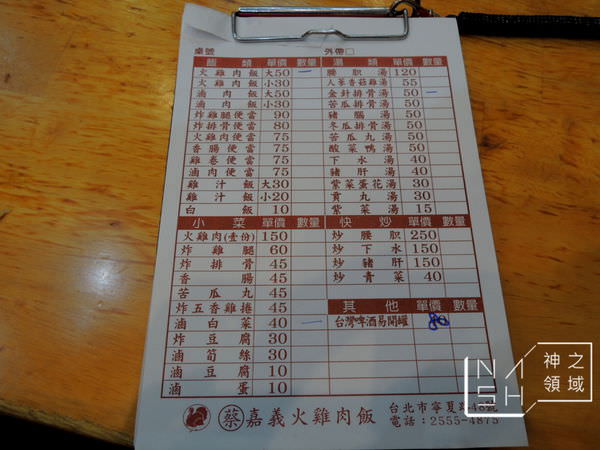 桌號 外帶□
飯類 單價 數量 湯類 單價 數量
火雞肉飯 大50 一 腰胆湯 120
火雞肉飯 小30 人蔘香菇雞湯 55
滷肉飯 大50 金針排骨湯 50 一
滷肉飯 小30 苦瓜排骨湯 50
炸雞腿便當 90 豬腸湯 50
炸排骨便當 80 冬瓜排骨湯 50
火雞肉便當 75 苦瓜丸湯 50
香腸便當 75 酸菜鴨湯 50
雞卷便當 75 下水湯 40
滷肉便當 75 豬肝湯 40
雞汁飯 大30 紫菜蛋花湯 30
雞汁飯 小20 貢丸湯 30
白飯 10 紫菜湯 15
小菜 單價 數量 快炒 單價 數量
火雞肉(壹份) 150 炒腰胆 250
炸雞腿 60 炒下水 150
炸排骨 45 炒豬肝 150
香腸 45 炒青菜 40
苦瓜丸 45
炸五香雞捲 45 其他 單價 數量
滷白菜 40 一 台灣啤酒易開罐
炸豆腐 30
滷筍絲 30
滷豆腐 10
滷蛋 10
蔡 嘉義火雞肉飯 台北市寧夏路48號
電話：2555-4875
NEH 神之領域